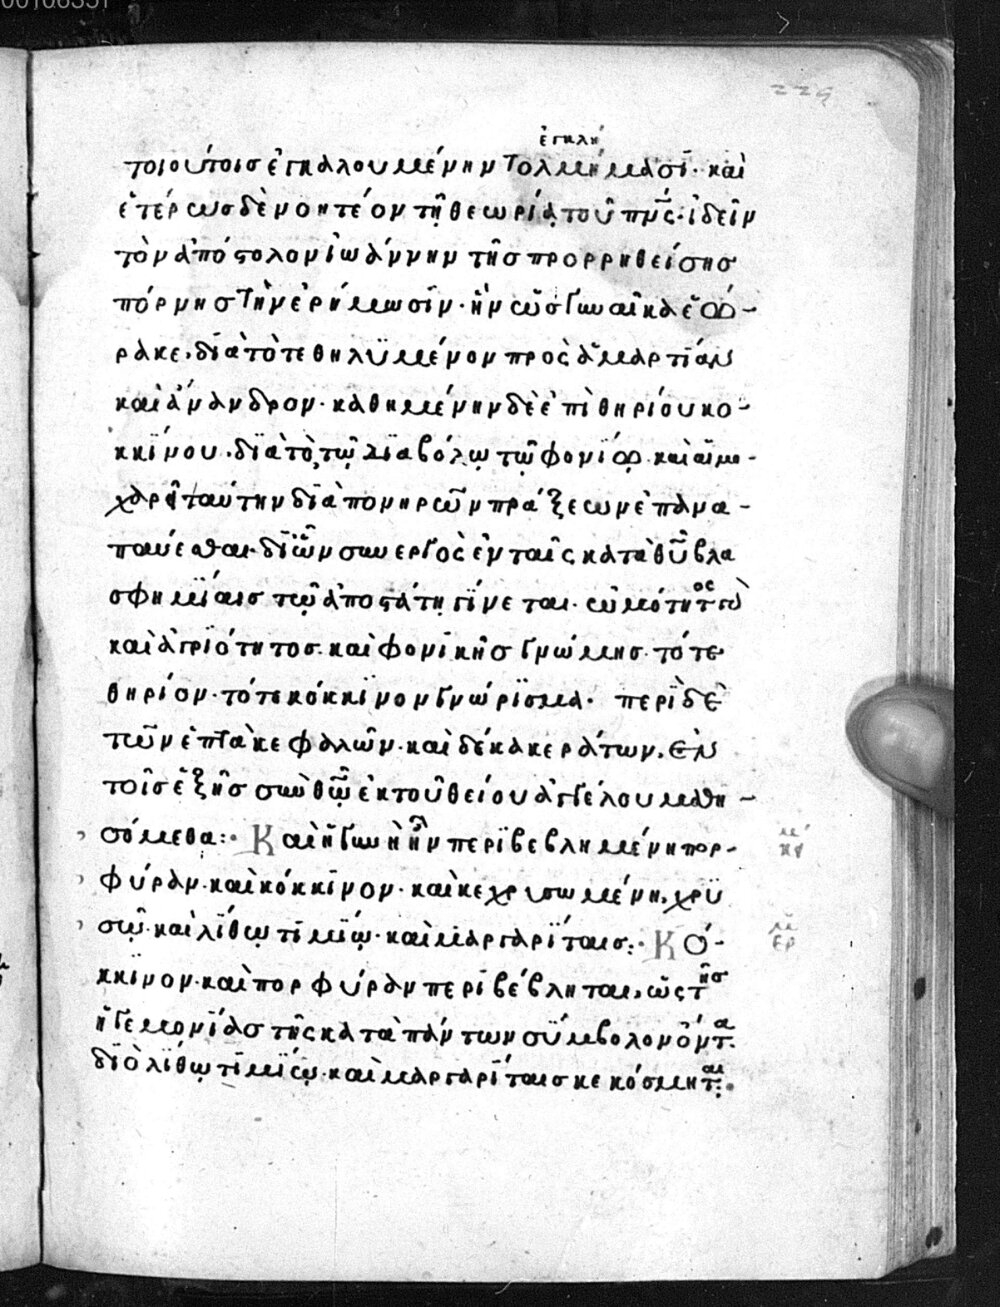 229
ἐγκλή
τοιούτοις ἐγκαλουμένην τολμήμασι· καὶ
ἑτέρως δὲ νοητέον τῇ θεωρίᾳ τοῦ πν̅ς· ἰδεῖν
τὸν ἀπόστολον ἰωάννην τῆς προρρηθείσης
πόρνης τὴν ἐρήμωσιν· ἣν ὡς γυναῖκα ἑω-
ρακε, διὰ τὸ τεθηλυμένον πρὸς ἁμαρτίαν
καὶ ἄνανδρον· καθημένην δὲ ἐπὶ θηρίου κο-
κκίνου· διὰ τὸ, τῷ διαβόλῳ τῷ φονίῳ καὶ αἱμο-
χαρεῖ ταύτην διὰ πονηρῶν πράξεων ἐπανα-
παύεσθαι· δι' ὧν συνεργὸς ἐν ταῖς κατὰ θ̅υ̅ βλα
σφημίαις τῷ ἀποστάτῃ γίνεται· ὠμότητος
καὶ ἀγριότητος καὶ φονικῆς γνώμης· τό τε
θηρίον· τό τε κόκκινον γνώρισμα· περὶ δὲ
τῶν ἑπτὰ κεφαλῶν· καὶ δέκα κεράτων, ἐν
τοῖς ἑξῆς σὺν θ̅ῷ̅ ἐκ τοῦ θείου ἀγγέλου μαθη-
σόμεθα:· Καὶ ἡ γυνὴ ἦν περιβεβλημένη πορ-
φύραν· καὶ κόκκινον· καὶ κεχρυσωμένη, χρυ
σῷ· καὶ λίθῳ τιμίῳ· καὶ μαργαρίταις:· Κό-
κκινον· καὶ πορφύραν περιβέβληται, ὡς τῆς
ἡγεμονίας τῆς κατὰ πάντων σύμβολον ὄντα.
διὸ λίθῳ τιμίῳ· καὶ μαργαρίταις κεκόσμηται:·